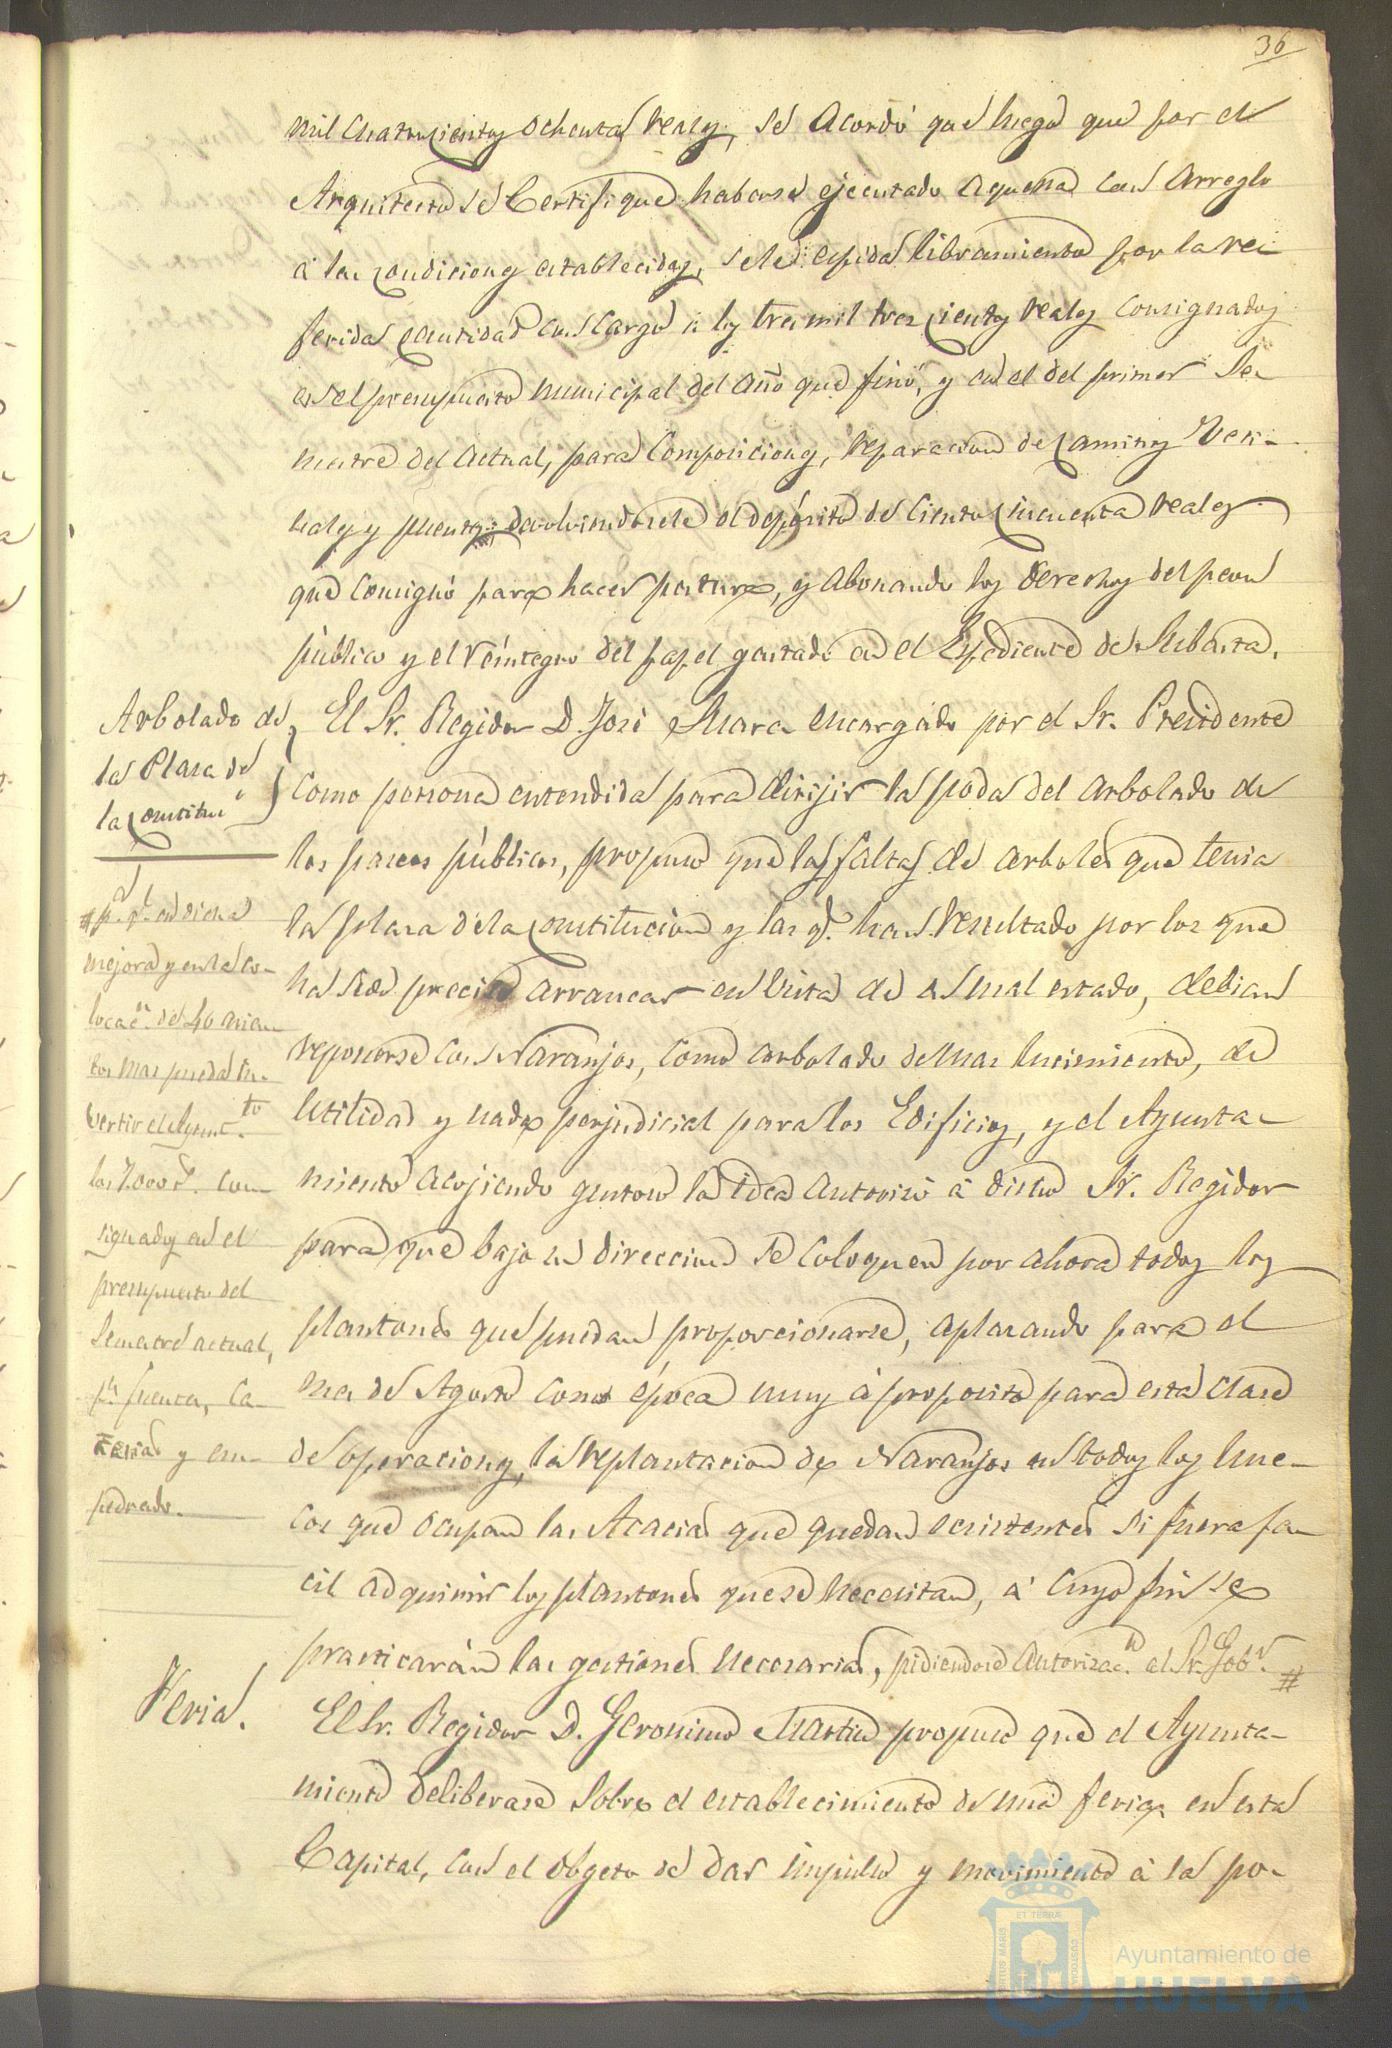 36
mil cuatrocientos ochenta reales, se acordó que luego que por el
Arquitecto se Certifique haberse ejecutado aquella con arreglo
á las condiciones establecidas, se le espida libramiento por la re-
ferida cantidad con cargo á los tres mil trescientos reales consignados
en el presupuesto municipal del año que finó, y en el del primer Se-
mestre del actual, para composiciones, reparacion de caminos Veci-
nales y puentes; devolviendosele el depósito de ciento cincuenta reales
que consignó para hacer postura, y abonando los derechos del peon
público y el reintegro del papel gastado en el Espediente de Subasta.
Arbolado de
la Plaza de
la Constitu.n
El Sr. Regidor D. José Suarez encargado por el Sr. Presidente
como persona entendida para dirijir la poda del arbolado de
los paseos públicos, propuso que las faltas de arboles que tenia
la plaza de la Constitucion y las q.e han resultado por los que
ha sido preciso arrancar en vista de su mal estado, debian
reponerse con Naranjos, como arbolado de mas lucimiento, de
utilidad y nada perjudicial para los Edificios, y el Ayunta-
miento acojiendo gustoso la idea autorizó á dicho Sr. Regidor
para que bajo su direccion se coloquen por ahora todos los
plantones que puedan proporcionarse, aplazando para el
mes de Agosto como época muy á proposito para esta clase
de operaciones, la replantacion de Naranjos en todos los hue-
cos que ocupan las Acacias que quedan ecsistentes si fuera fa-
cil adquirir los plantones que se necesitan, á cuyo fin se
practicarán las gestiones necesarias, pidiendose autorizac.n al Sr. Gob.r #
# p.a q.e en dicha
mejora y en la co-
locac.n de 46 asien-
tos mas pueda in-
vertir el Ayunt.to
los 7.000 r.s con-
signados en el
presupuesto del
Semestre actual,
p.a fuentes, ca-
ñerias y em-
pedrado.
Feria.
El Sr. Regidor D. Geronimo Martin propuso que el Ayunta-
miento deliberase sobre el establecimiento de una feria en esta
Capital, con el obgeto de dar impulso y movimiento á la po-
Ayuntamiento de
HUELVA